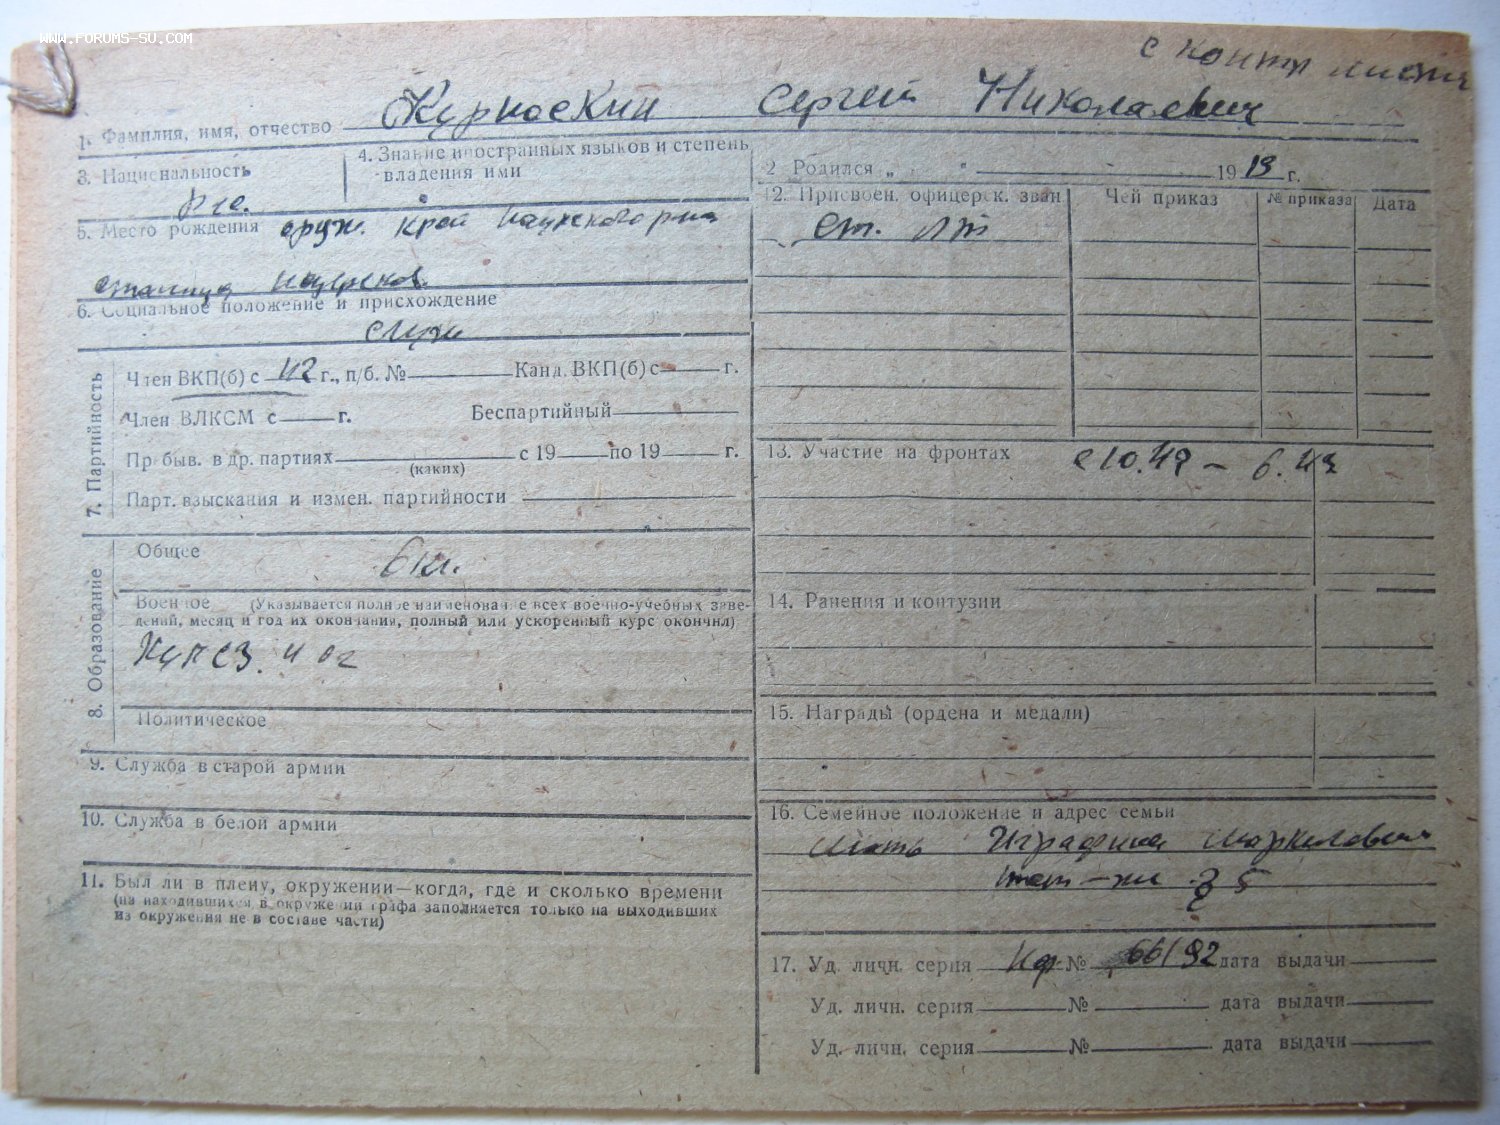 WWW.FORUMS-SU.COM
с контр
1. Фамилия, имя, отчество Курноскин Сергей Николаевич
3. Национальность рус.
4. Знание иностранных языков и степень владения ими
5. Место рождения орджон. край Наурского р-на
станица Наурская
6. Социальное положение и присхождение
служ
7. Партийность
Член ВКП(б) с 42 г., п/б. № Канд. ВКП(б) с г.
Член ВЛКСМ с г. Беспартийный
Пребыв. в др. партиях с 19 по 19 г.
(каких)
Парт. взыскания и измен. партийности
8. Образование
Общее 6 кл.
Военное (Указывается полное наименование всех военно-учебных заве-
дений, месяц и год их окончания, полный или ускоренный курс окончил)
Политическое
9. Служба в старой армии
10. Служба в белой армии
11. Был ли в плену, окружении—когда, где и сколько времени
(на находившихся в окружении графа заполняется только на выходивших
из окружения не в составе части)
2 Родился „ " 1913 г.
12. Присвоен. офицерск. зван Чей приказ № приказа Дата
ст. лт
13. Участие на фронтах с 10.42 – 6.43
14. Ранения и контузии
15. Награды (ордена и медали)
16. Семейное положение и адрес семьи
мать Играфина Маркиловна
17. Уд. личн. серия № 66192 дата выдачи
Уд. личн. серия № дата выдачи
Уд. личн. серия № дата выдачи